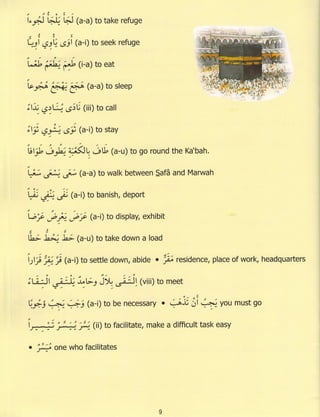 لُجُوءًا لَجَأَ يَلْجَأُ (a-a) to take refuge
أَوَى يَأْوِي (a-i) to seek refuge
طَعِمَ يَطْعَمُ طَعَامًا (i-a) to eat
(a-a) to sleep
نَادَى يُنَادِي نِدَاءً (iii) to call
ثَوَى يَثْوِي ثَوَاءً (a-i) to stay
طَافَ بِالْكَعْبَةِ يَطُوفُ طَوَافًا (a-u) to go round the Ka'bah.
سَعَى يَسْعَى سَعْيًا (a-a) to walk between Ṣafā and Marwah
نَفَى يَنْفِي نَفْيًا (a-i) to banish, deport
عَرَضَ يَعْرِضُ عَرْضًا (a-i) to display, exhibit
حَطَّ يَحُطُّ حَطًّا (a-u) to take down a load
قَرَّ يَقِرُّ قَرَارًا (a-i) to settle down, abide • مَقَرٌّ residence, place of work, headquarters
(viii) to meet
وَجَبَ يَجِبُ وُجُوبًا (a-i) to be necessary • يَجِبُ أَنْ تَذْهَبَ you must go
يَسَّرَ يُيَسِّرُ تَيْسِيرًا (ii) to facilitate, make a difficult task easy
• مُيَسِّرٌ one who facilitates
9